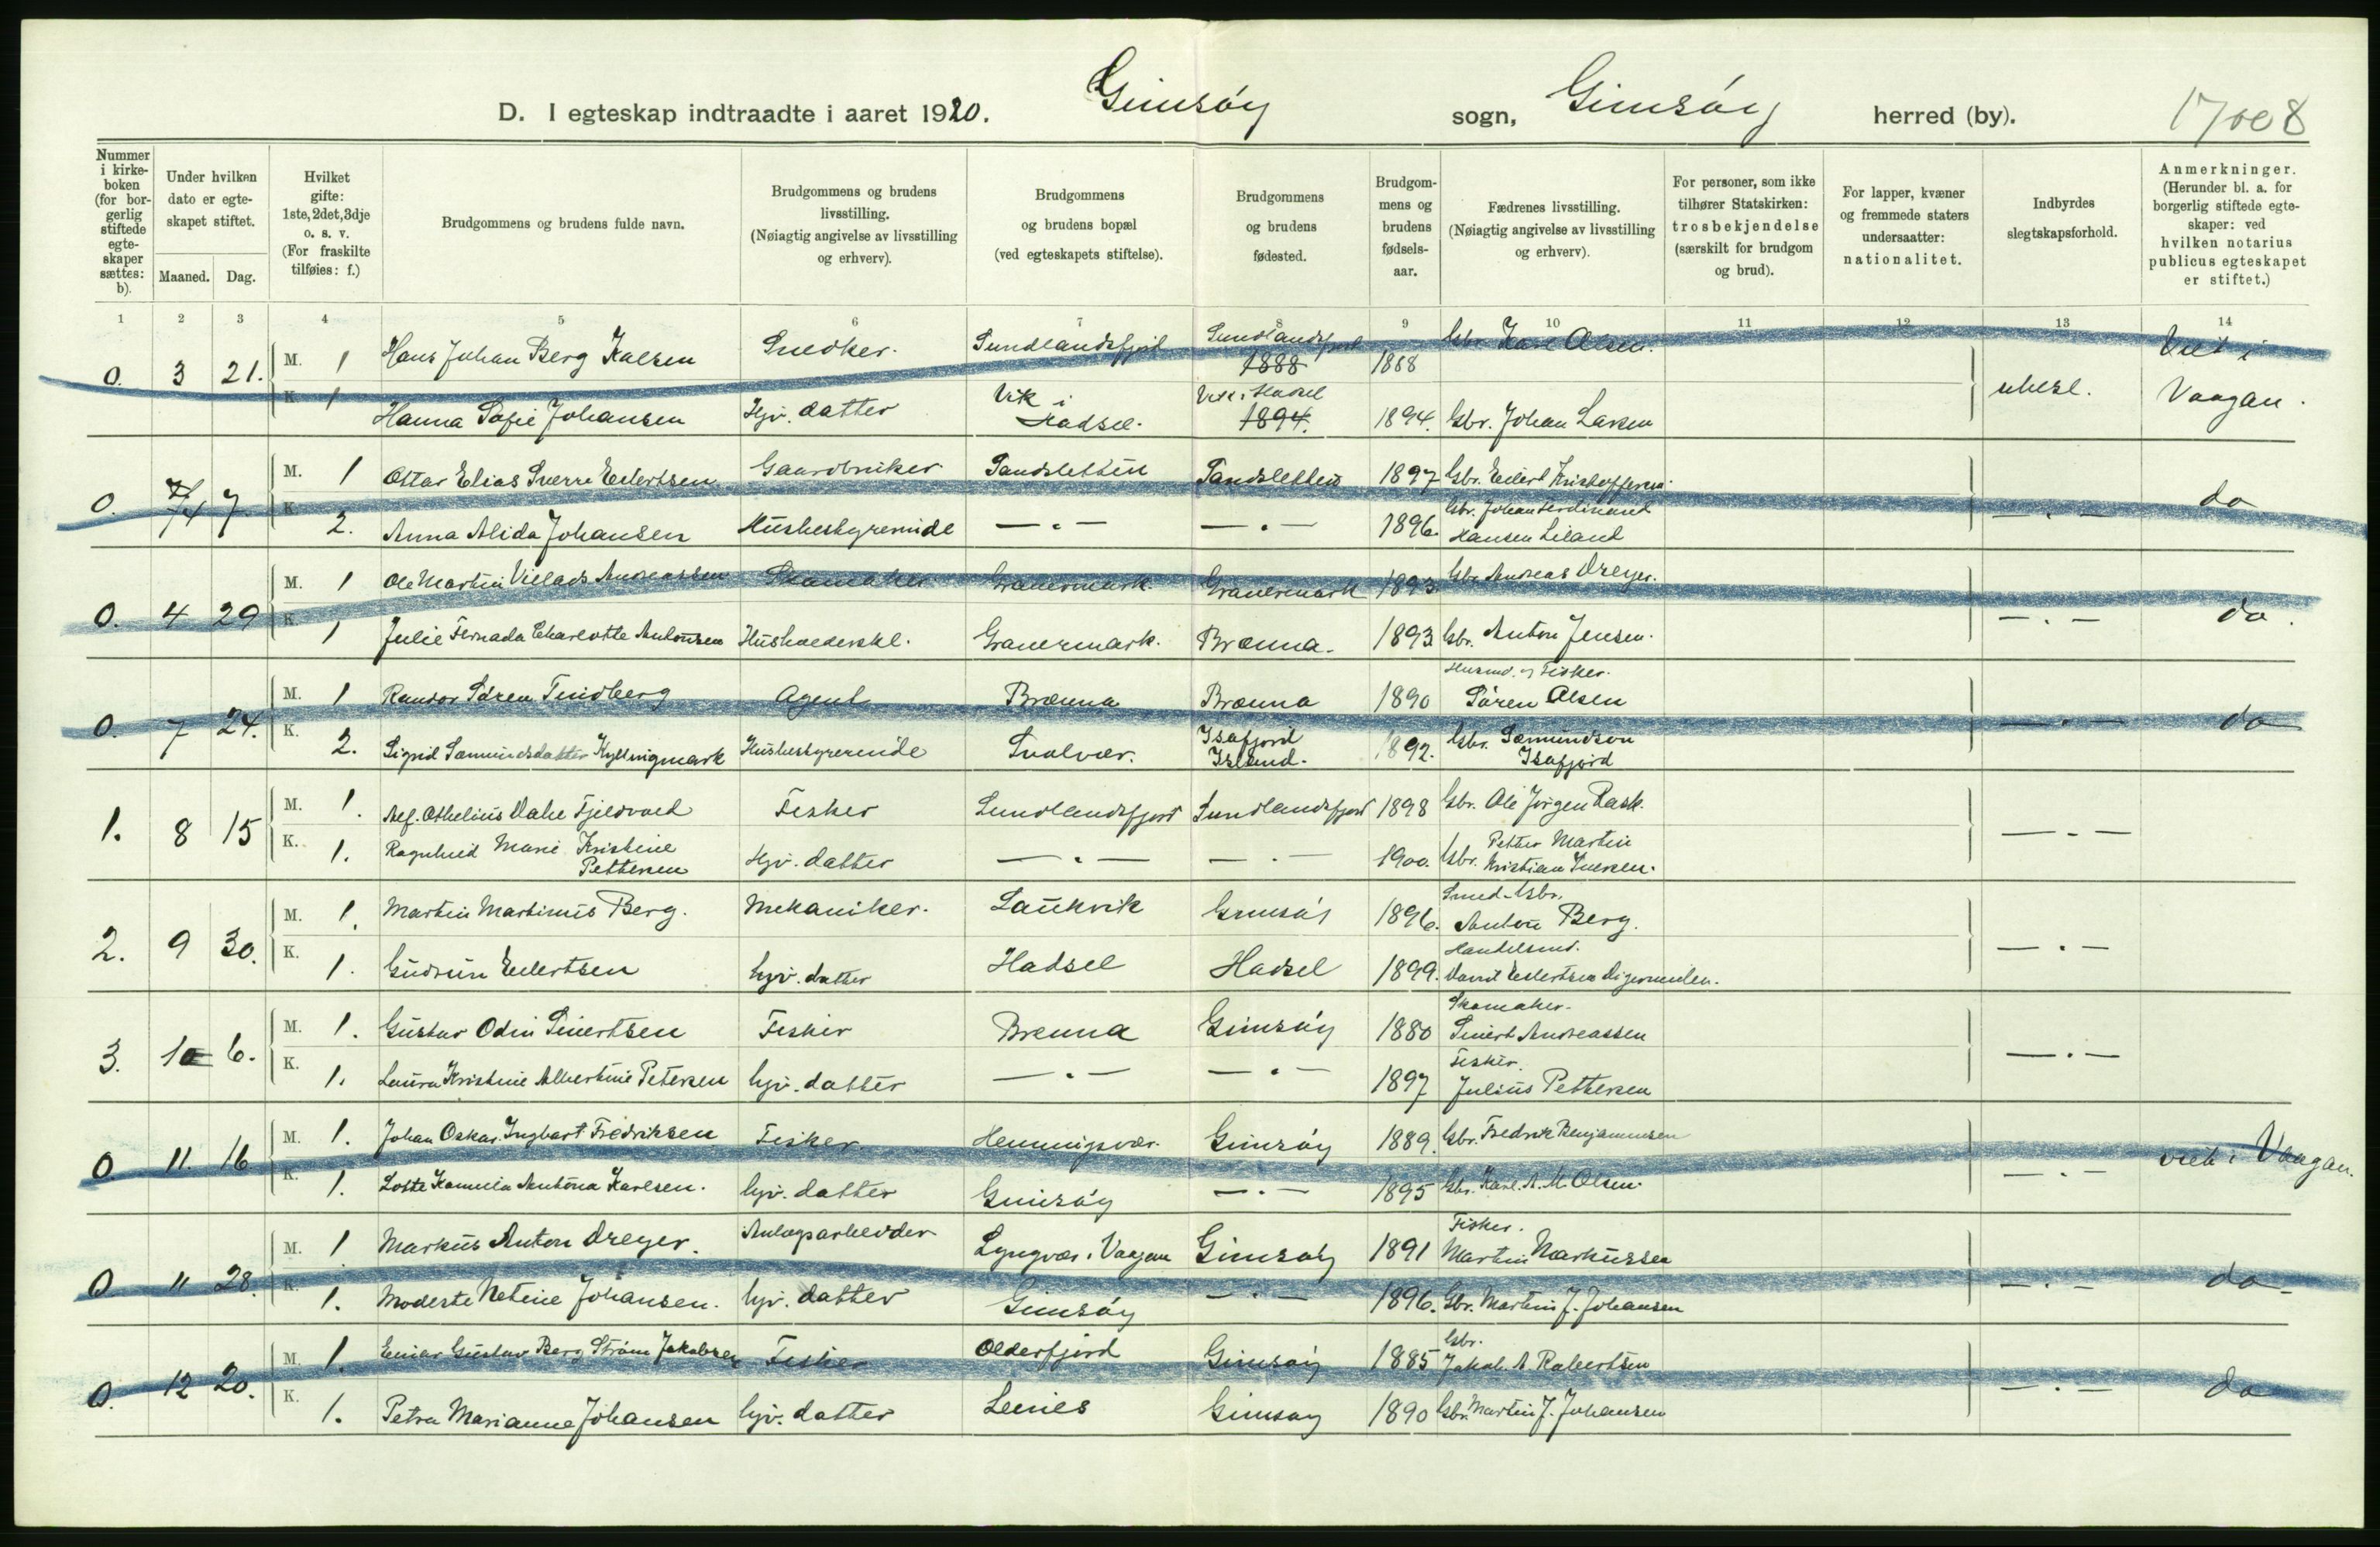 D. I egteskap indtraadte i aaret 1920. Gimsöy sogn, Gimsöy herred (by). 17008
Nummer i kirkeboken (for borgerlig stiftede egteskaper sættes: b).
Under hvilken dato er egteskapet stiftet.
Maaned. Dag.
Hvilket gifte: 1ste, 2det, 3dje o. s. v. (For fraskilte tilføies: f.)
Brudgommens og brudens fulde navn.
Brudgommens og brudens livsstilling. (Nøiagtig angivelse av livsstilling og erhverv).
Brudgommens og brudens bopæl (ved egteskapets stiftelse).
Brudgommens og brudens fødested.
Brudgommens og brudens fødselsaar.
Fædrenes livsstilling. (Nøiagtig angivelse av livsstilling og erhverv).
For personer, som ikke tilhører Statskirken: trosbekjendelse (særskilt for brudgom og brud).
For lapper, kvæner og fremmede staters undersaatter: nationalitet.
Indbyrdes slegtskapsforhold.
Anmerkninger. (Herunder bl. a. for borgerlig stiftede egteskaper: ved hvilken notarius publicus egteskapet er stiftet.)
1 2 3 4 5 6 7 8 9 10 11 12 13 14
0. 3 21. M. 1 Hans Johan Berg Kalsen Snedker. Sundlandsfjord Sundlandsfjord 1888 1888 Gbr. Karl Olsen. ubesl. Viet i Vaagan.
K. 1 Hanna Sofie Johansen Hjv. datter Vik i Hadsel. Vik i Hadsel 1894. 1894. Gbr. Johan Larsen
0. 4 7 M. 1 Ottar Elias Sverre Eilertsen Gaardbruker Sandsletten Sandsletten 1897 Gbr. Eilert Kristoffersen — . — do
K. 2. Anna Alida Johansen Husbestyrerinde — . — — . — 1896. Gbr. Johan Ferdinand Hansen Liland
0. 4 29 M. 1 Ole Martin Villads Andreassen Skomaker Granermark. Granermark 1893 Gbr. Andreas Dreyer. — . — do.
K. 1 Julie Fernada Charlotte Antonsen Husholderske. Granermark. Brenna. 1893 Gbr. Anton Jensen.
0. 7 24. M. 1 Randor Sören Tindberg Agent Brenna Brenna 1890 Husmd. og Fisker. Sören Olsen — . — do
K. 2. Sigrid Sæmundsdatter Kyllingmark Husbestyrerinde Svolvær. Isafjord Island. 1892. Gbr. Sæmundson Isafjord
1. 8 15 M. 1. Alf. Othelius Dahe Fjeldvold Fisker Sundlandsfjord Sundlandsfjord 1898 Gbr. Ole Jörgen Rask. — . —
K. 1. Ragnhild Marie Kristine Pettersen Hjv. datter — . — — . — 1900. Gbr. Petter Martin Kristian Iversen.
2. 9 30. M. 1. Martin Martinus Berg. Mekaniker. Laukvik Gimsöy 1896. Smed. Gbr. Anton Berg. — . —
K. 1. Gudrun Eilertsen hjv. datter Hadsel Hadsel 1899. Handelsmd. David Eilertsen Digermulen.
3. 10 6. M. 1. Gustav Odin Sivertsen Fisker Brenna Gimsöy 1880 Skomaker. Sivert Andreassen — . —
K. 1. Laura Kristine Albertine Petersen hjv. datter — . — — . — 1897 Fisker. Julius Pettersen
0. 11. 16 M. 1. Johan Oskar Ingbart Fredriksen Fisker. Henningsvær. Gimsöy 1889. Gbr. Fredrik Benjaminsen — . — viet i Vaagan.
K. 1. Lotte Kamilla Antona Karlsen. hjv. datter Gimsöy — . — 1895 Gbr. Karl. A. M. Olsen.
0 11 28. M. 1 Markus Anton Dreyer. Anlægsarbeider Lyngvær i Vaagan Gimsöy 1891 Fisker. Martin Markussen — . — do.
K. 1. Modeste Netine Johansen. hjv. datter Gimsöy — . — 1896. Gbr. Martin J. Johansen
0. 12 20. M. 1. Einar Gustav Berg Ström Jakobsen Fisker Olderfjord Gimsöy 1885 Gbr. Jakob. A Robertsen — . — do
K. 1. Petra Marianne Johansen hjv. datter Leines Gimsöy 1890 Gbr. Martin J. Johansen